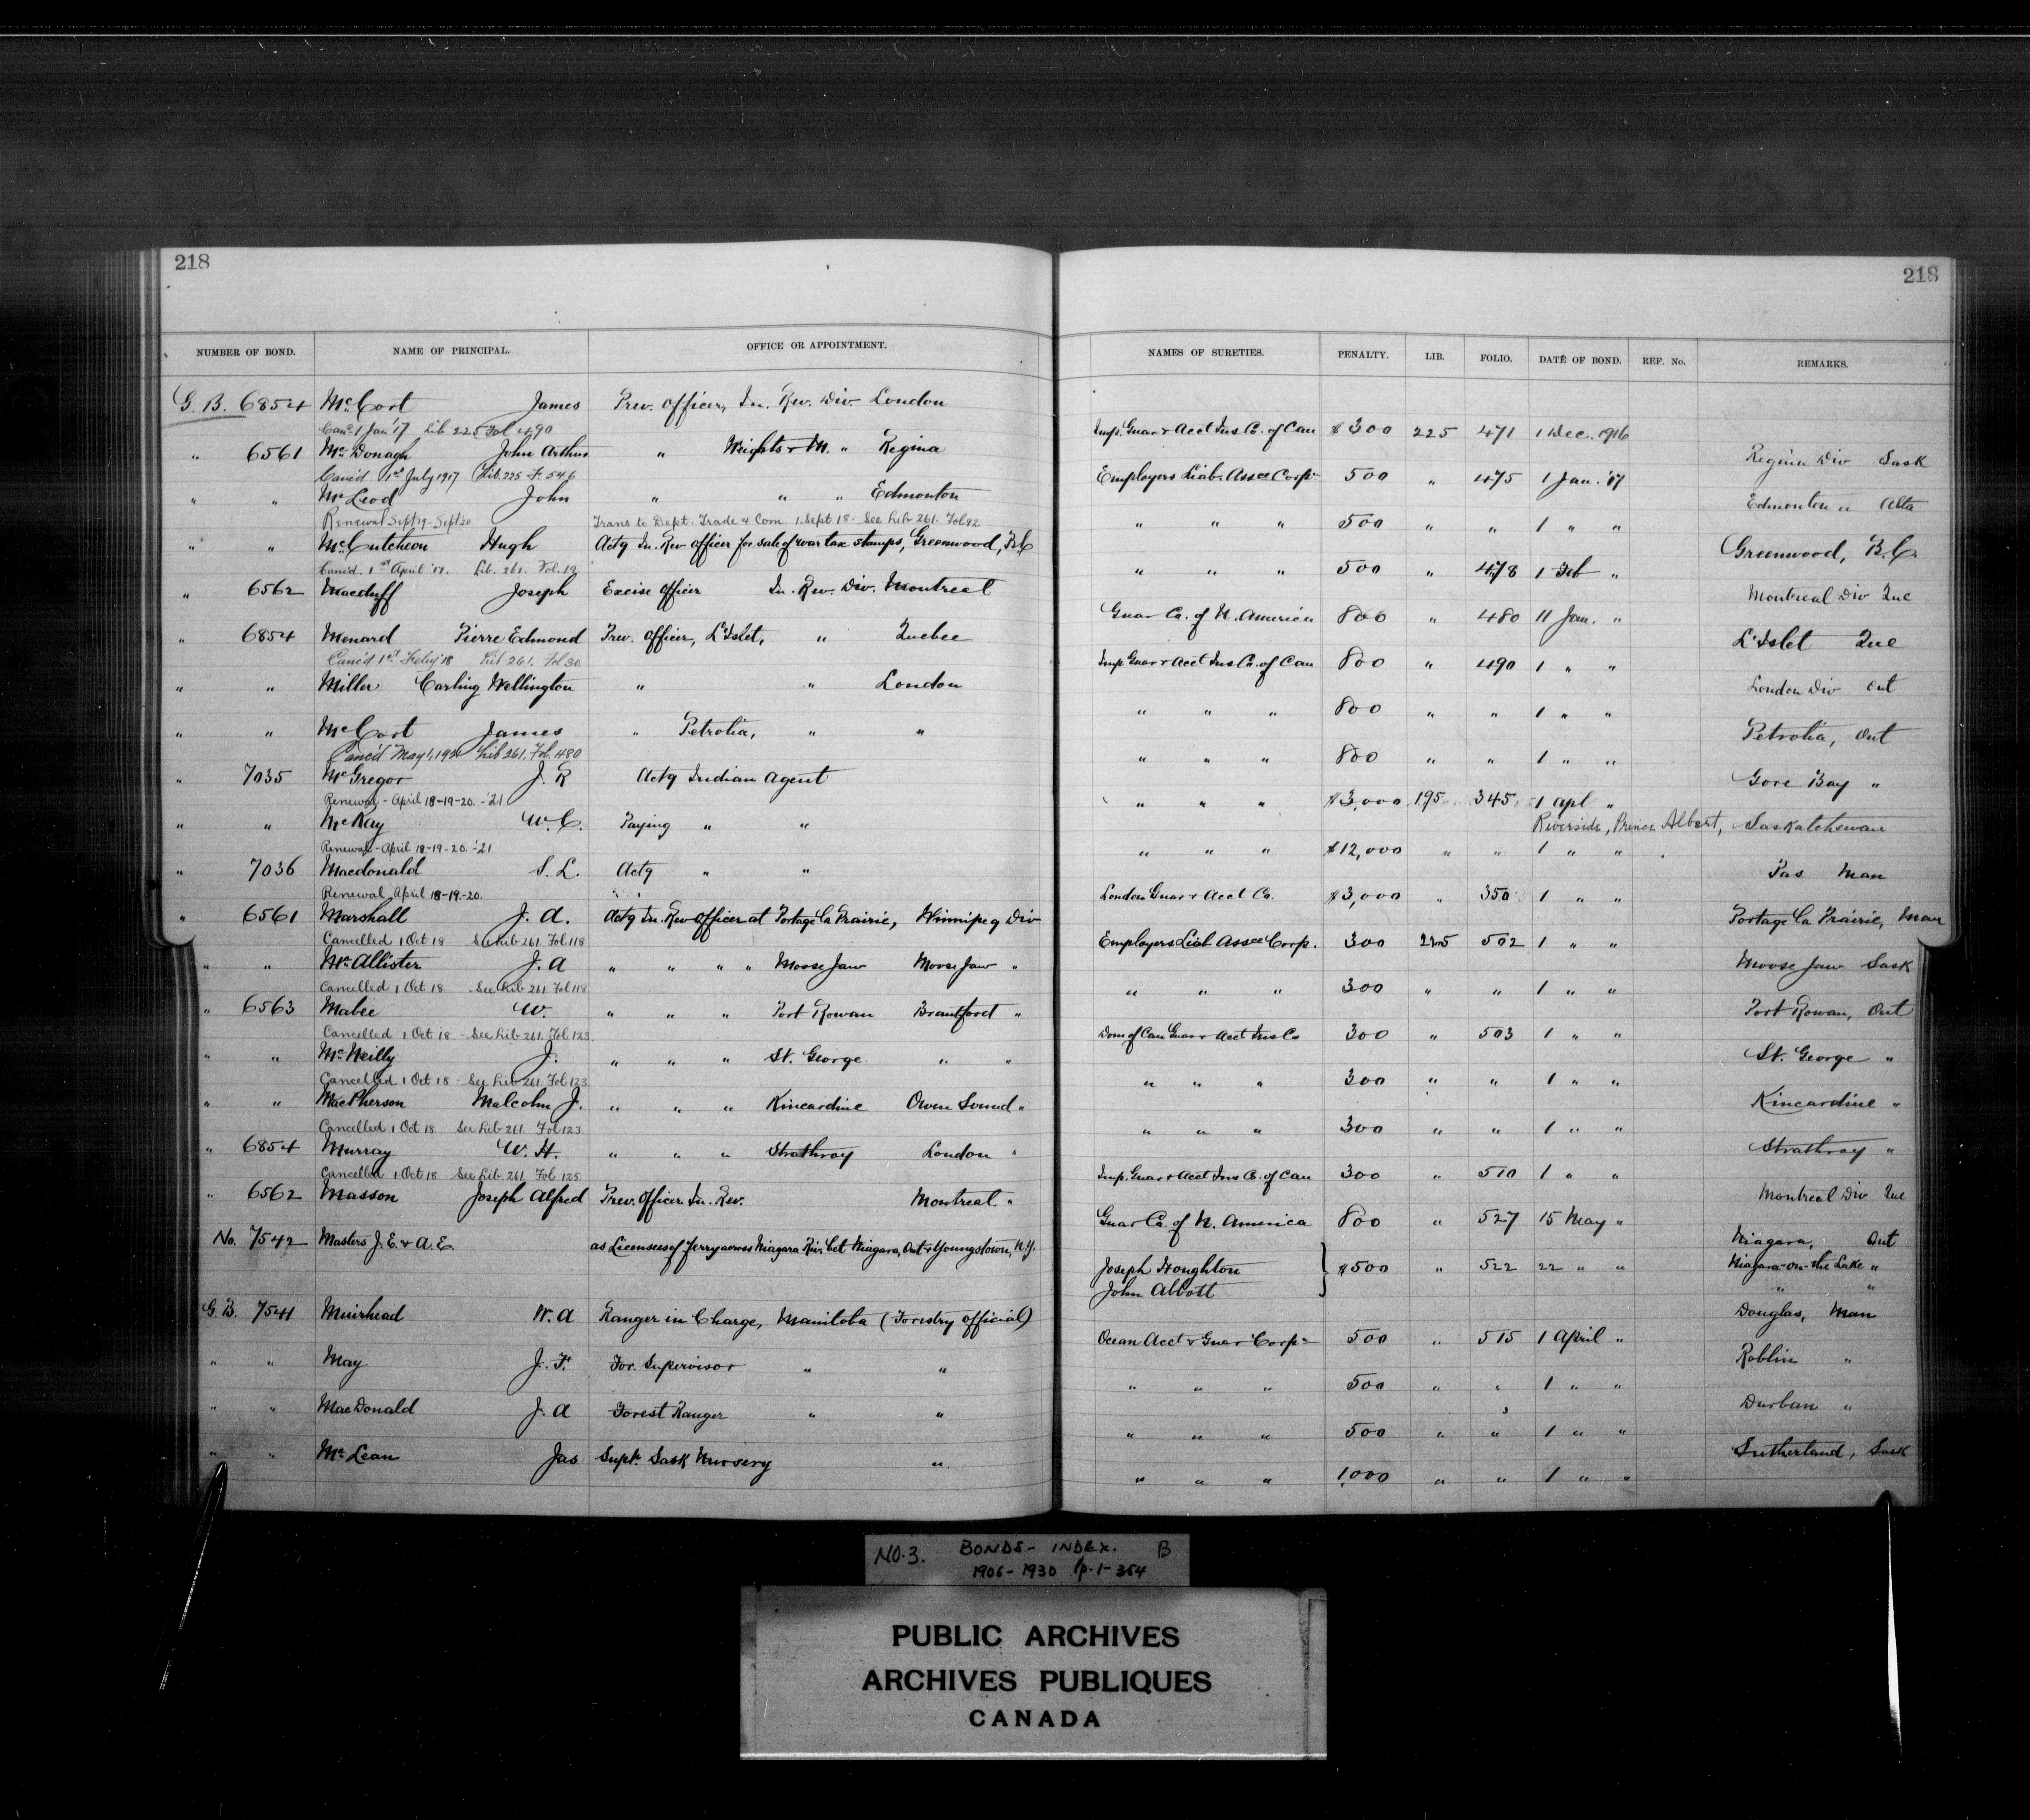 218
218
NUMBER OF BOND. NAME OF PRINCIPAL. OFFICE OR APPOINTMENT. NAMES OF SURETIES. PENALTY. LIB. FOLIO. DATE OF BOND. REF. No. REMARKS.
G. B. 6854 McCort James Prev. Officer, In. Rev. Div. London Imp. Guar & Acct Ins Co. of Can $300 225 471 1 Dec. 1916
Canc. 1 Jan '17 Lib 225 Fol 490
" 6561 McDonagh John Arthur " Weights & M. " Regina Employers Liab. Assce Corpn 500 " 475 1 Jan. '17 Regina Div Sask
Canc'd 1st July 1917 Lib. 225 F. 546
" " McLeod John " " " Edmonton " " " 500 " " 1 " " Edmonton " Alta
Renewal Sept 19 - Sept 20 Trans to Dept. Trade & Com 1. Sept 18. See Lib 261. Fol 92
" " McCutcheon Hugh Actg In. Rev Officer for sale of war tax stamps, Greenwood, B.C " " " 500 " 478 1 Feb " Greenwood, B.C.
Canc'd. 1st April '17. Lib. 261. Fol. 19
" 6562 Macduff Joseph Excise Officer In. Rev. Div. Montreal Guar Co. of N. America 800 " 480 11 Jan. " Montreal Div Que
" 6854 Menard Pierre Edmond Prev. Officer, L'Islet, " Quebec Imp Guar & Acct Ins Co. of Can 800 " 490 1 " " L'Islet Que
Canc'd 1st Feby '18 Lib 261. Fol 30
" " Miller Carling Wellington " " London " " " 800 " " 1 " " London Div Ont
" " McCort James " Petrolia, " " " " " 800 " " 1 " " Petrolia, Ont
Canc'd May 1, 192 Lib 261, Fol. 480
" 7035 McGregor J. R Actg Indian Agent " " " $3,000 195 345 1 Apl " Gore Bay "
Renewal - April 18-19-20. -'21
" " McKay W. C. Paying " " " " " $12,000 " " 1 " " Riverside, Prince Albert, Saskatchewan
Renewal - April 18-19-20. -'21
" 7036 Macdonald S. L. Actg " " London Guar & Acct Co. $3,000 " 350 1 " " Pas Man
Renewal April 18-19-20.
" 6561 Marshall J. A. Actg In. Rev Officer at Portage la Prairie, Winnipeg Div Employers Liab Assce Corp. 300 225 502 1 " " Portage la Prairie, Man
Cancelled 1 Oct 18 See Lib 261 Fol 118
" " McAllister J. A " " " " Moose Jaw Moose Jaw " " " " 300 " " 1 " " Moose Jaw Sask
Cancelled 1 Oct 18 See Lib 261 Fol 118
" 6563 Mabee W. " " " Port Rowan Brantford " Dom of Can Guar & Acct Ins Co 300 " 503 1 " " Port Rowan, Ont
Cancelled 1 Oct 18 - See Lib 261. Fol 123
" " McNeilly J. " " " St. George " " " " " 300 " " 1 " " St. George "
Cancelled 1 Oct 18 - See Lib 261. Fol 123
" " MacPherson Malcolm J. " " " Kincardine Owen Sound " " " " 300 " " 1 " " Kincardine "
Cancelled 1 Oct 18 See Lib 261. Fol 123
" 6854 Murray W. H. " " " Strathroy London " Imp. Guar & Acct Ins Co. of Can 300 " 510 1 " " Strathroy "
Cancelled 1 Oct 18 See Lib. 261. Fol 125
" 6562 Masson Joseph Alfred Prev. Officer In. Rev. Montreal " Guar Co. of N. America 800 " 527 15 May " Montreal Div Que
No. 7542 Masters J. E. & A. E. as Licensees of Ferry across Niagara Riv. bet Niagara, Ont & Youngstown, N.Y. Niagara, Ont
Joseph Houghton } $500 " 522 22 " " Niagara-on-the-Lake "
John Abbott " "
G. B. 7541 Muirhead W. A Ranger in Charge, Manitoba (Forestry official) Ocean Acct & Guar Corpn 500 " 515 1 April " Douglas, Man
" " May J. F. For. Supervisor " " " " " 500 " " 1 " " Roblin "
" " MacDonald J. A Forest Ranger " " " " " 500 " " 1 " " Durban "
" " McLean Jas Supt. Sask Nursery " " " " 1,000 " " 1 " " Sutherland, Sask
NO. 3. BONDS - INDEX. B
1906 - 1930 p. 1 - 354
PUBLIC ARCHIVES
ARCHIVES PUBLIQUES
CANADA